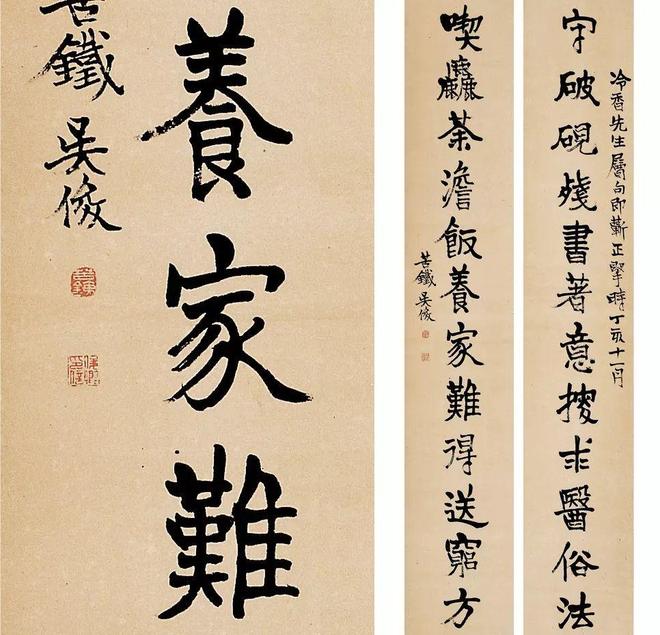 冷香先生屬句即蘄正時丁亥十一月
守破硯殘書著意搜求醫俗法
喫麤茶澹飯養家難得送窮方
苦鐵 吳俊
養家難
苦鐵 吳俊